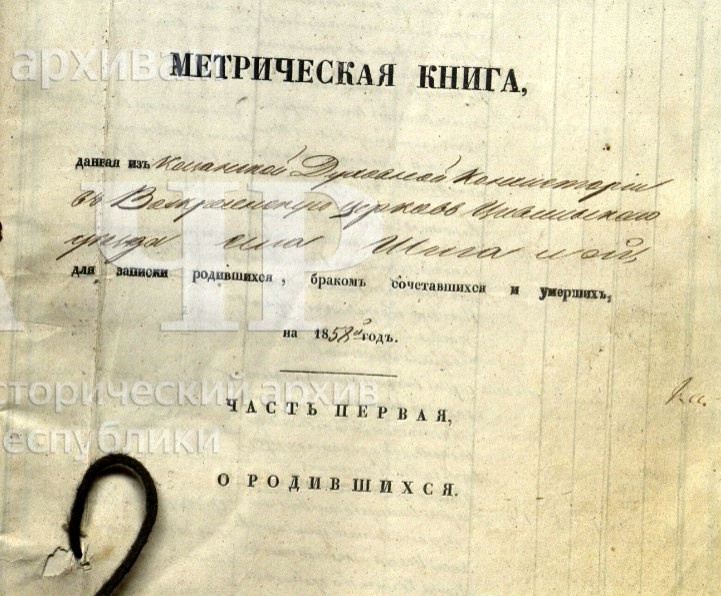 архивам
МЕТРИЧЕСКАЯ КНИГА,
данная изъ Казанской Духовной Консисторіи
въ Воскресенскую церковь Цивильскаго
уѣзда села
для записки родившихся, бракомъ сочетавшихся и умершихъ,
на 1858й годъ.
сторический архив
ЧАСТЬ ПЕРВАЯ,
еспублики
О РОДИВШИХСЯ.